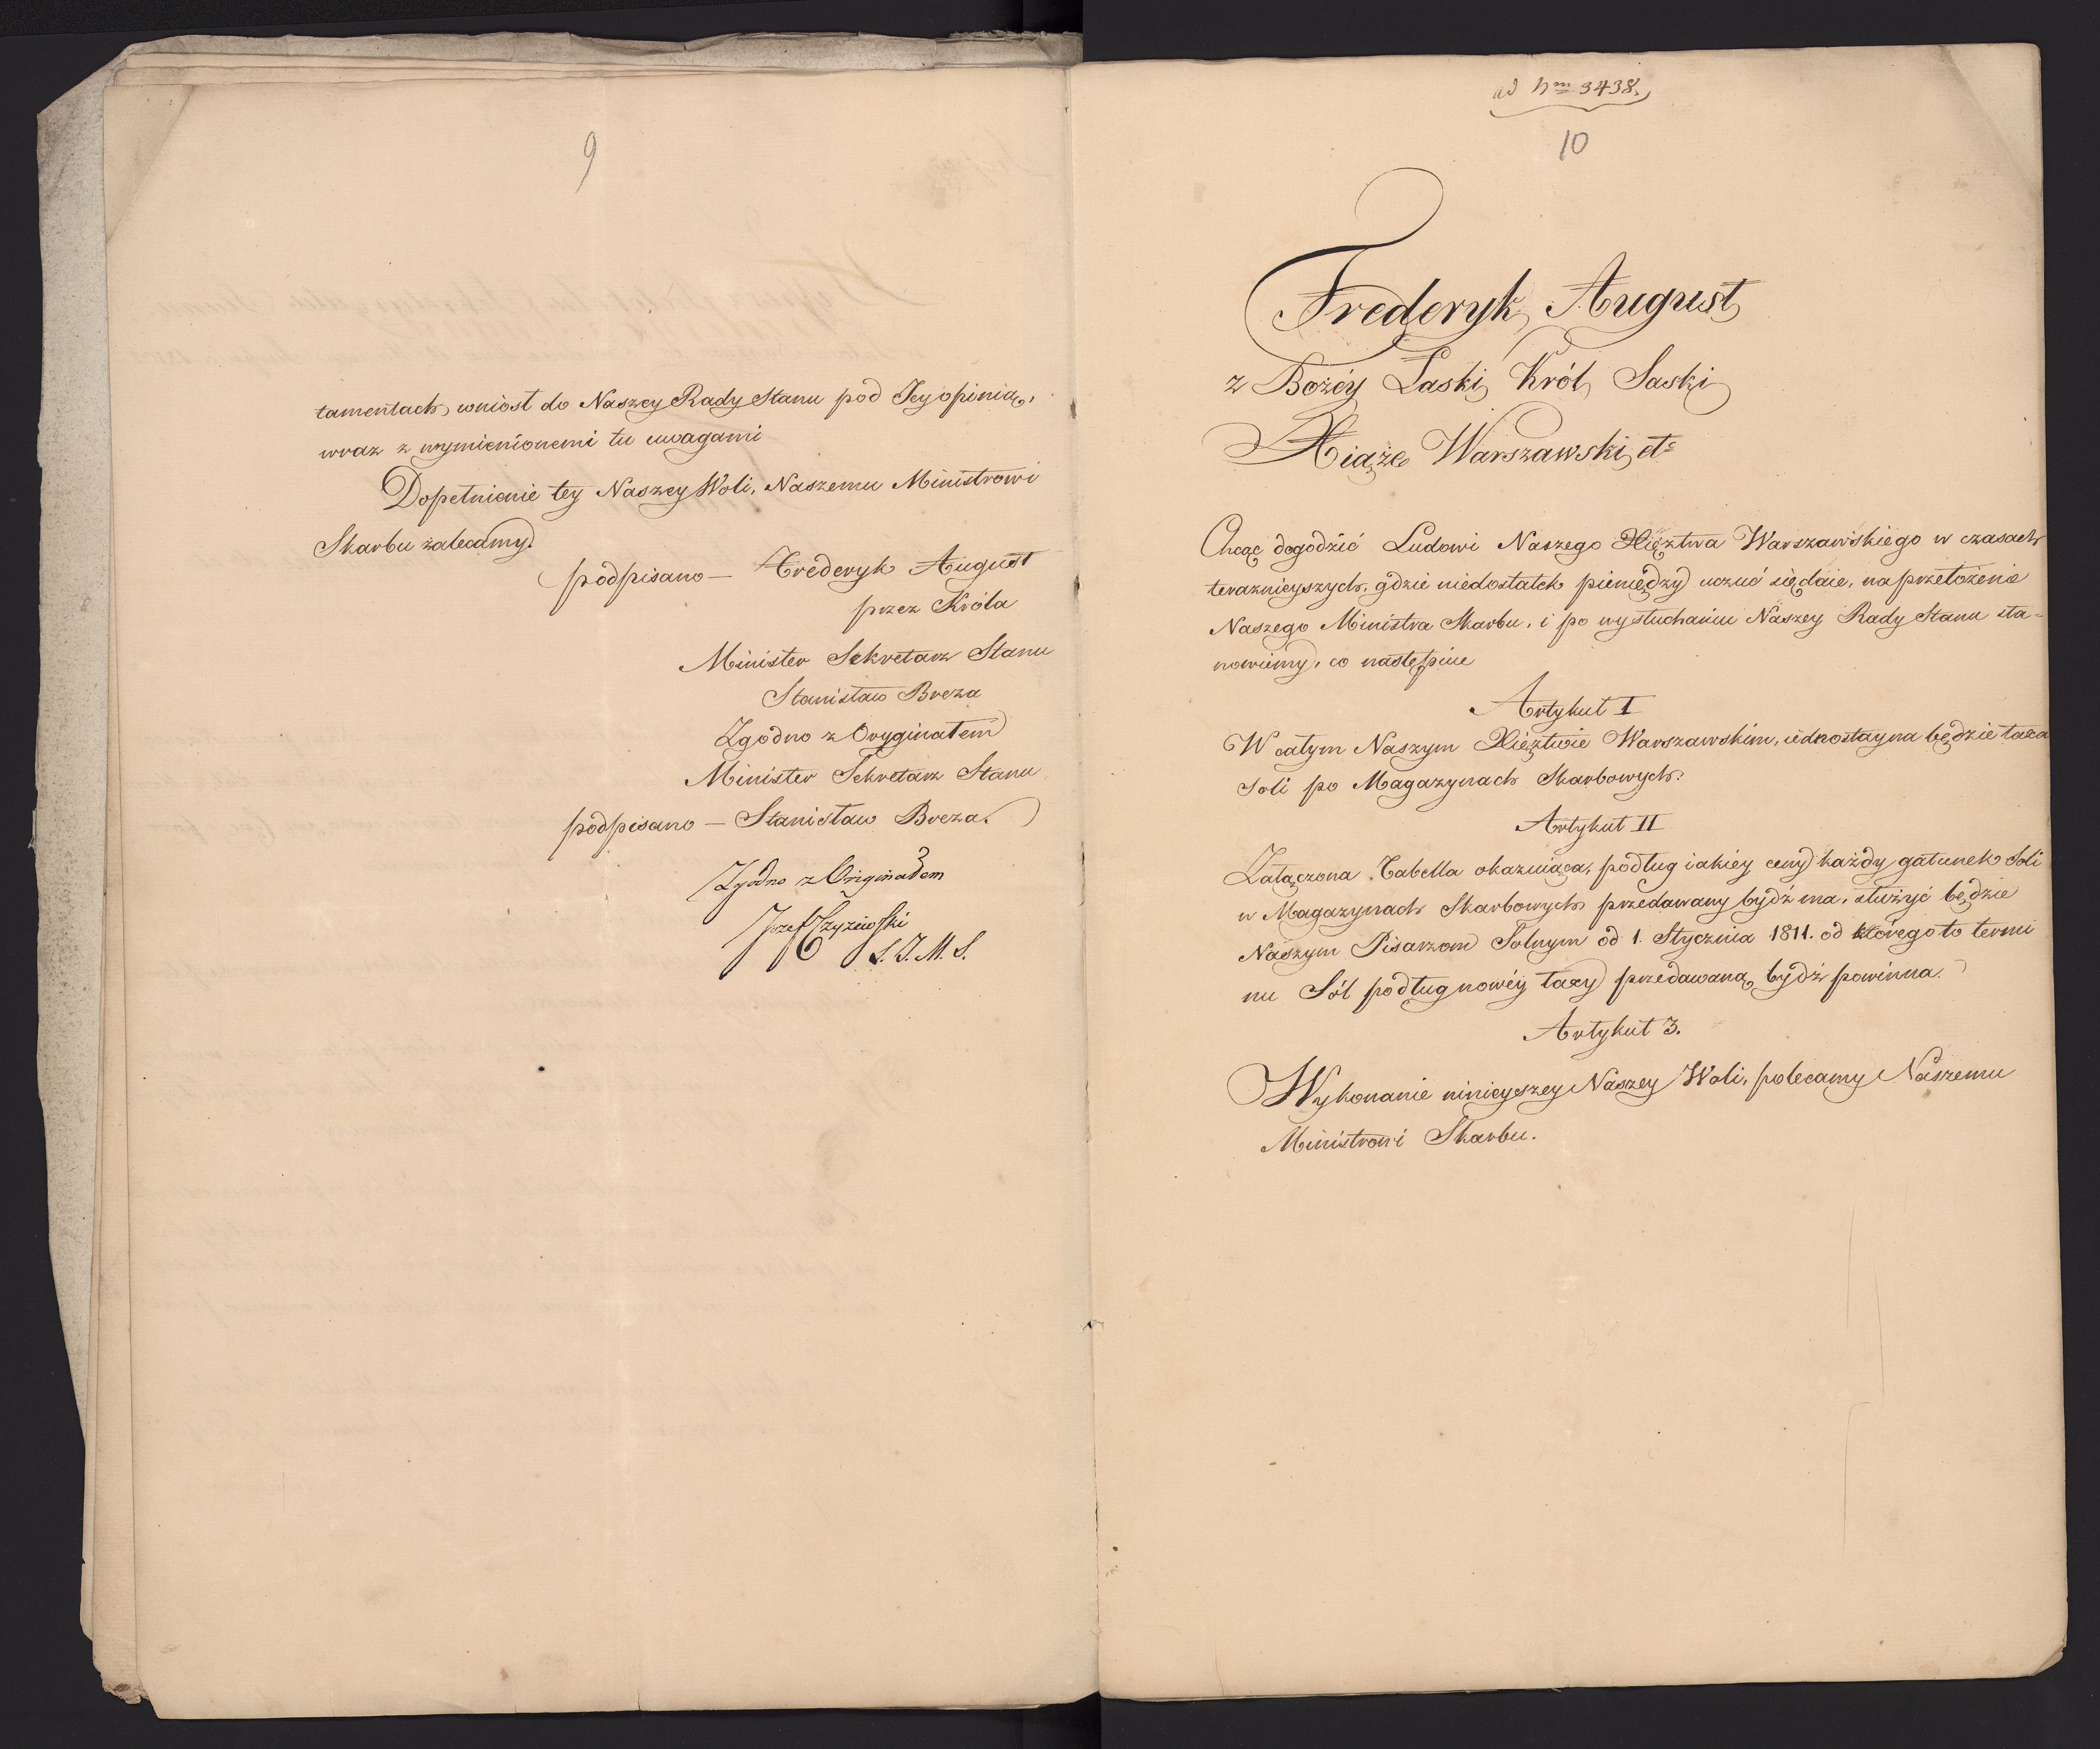 9
tamentach wniósł do Naszey Rady Stanu pod Jey opinią,
wraz z wymienionemi tu uwagami
Dopełnienie tey Naszey Woli, Naszemu Ministrowi
Skarbu zalecamy.
podpisano — Frederyk August
przez Króla
Minister Sekretarz Stanu
Stanisław Breza
Zgodno z Oryginałem
Minister Sekretarz Stanu
podpisano — Stanisław Breza.
Zgodno z Originałem
Jozef Czyżewski
S. J. M. S.
ad Nm 3438.
10
Frederyk August
z Bożéy Łaski Król Saski
Xiążę Warszawski etc
Chcąc dogodzić Ludowi Naszego Xięztwa Warszawskiego w czasach
teraznieyszych, gdzie niedostatek pieniędzy uczuć się daie, na przełożenie
Naszego Ministra Skarbu, i po wysłuchaniu Naszey Rady Stanu sta=
nowiemy, co następuie
Artykuł I
W całym Naszym Xięztwie Warszawskim, iednostayna będzie taxa
Soli po Magazynach Skarbowych.
Artykuł II
Załączona Tabella okazuiąca, podług iakiey ceny każdy gatunek Soli
w Magazynach Skarbowych przedawany bydź ma, służyć będzie
Naszym Pisarzom Solnym od 1. Stycznia 1811. od którego to termi
nu Sól podług nowéy taxy przedawana bydź powinna.
Artykuł 3.
Wykonanie ninieyszey Naszey Woli, polecamy Naszemu
Ministrowi Skarbu.